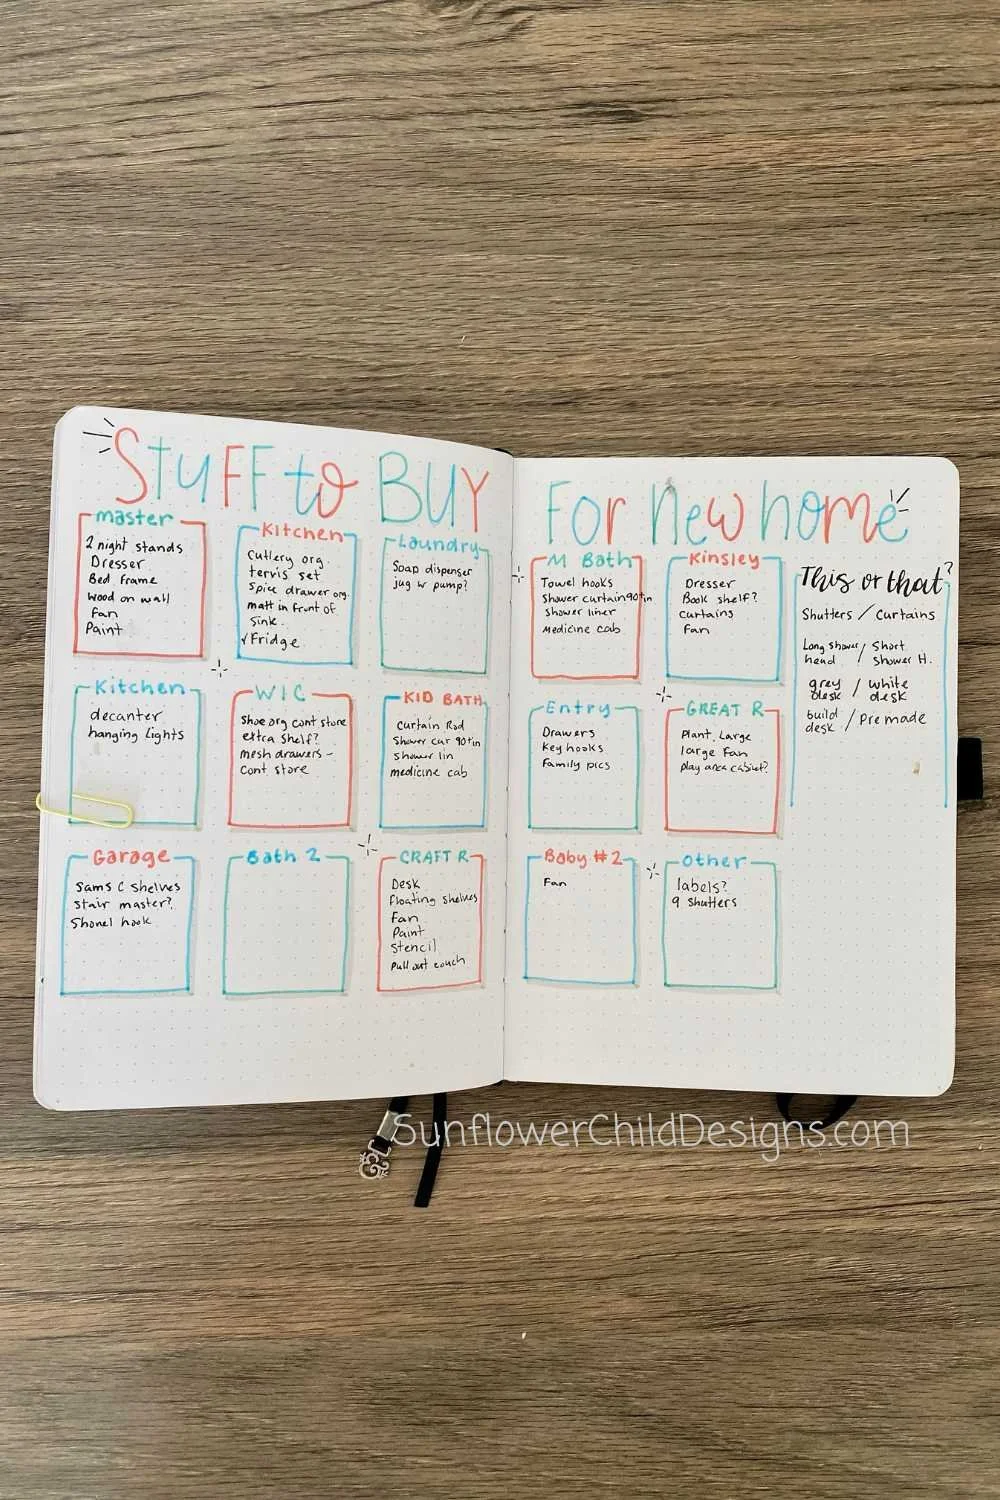 Stuff to Buy
For New home
master
2 night stands
Dresser
Bed Frame
wood on wall
fan
Paint
Kitchen
Cutlery org
tervis set
Spice drawer org.
matt in front of
Sink.
✓Fridge
Laundry
Soap dispenser
jug w pump?
Kitchen
decanter
hanging Lights
WIC
Shoe org cont store
extra shelf?
mesh drawers -
Cont store
KID BATH
Curtain Rod
Shower cur 90+in
Shower lin
medicine cab
Garage
Sams C shelves
Stair master?
Shovel hook
Bath 2
CRAFT R
Desk
Floating shelves
Fan
Paint
Stencil
Pull out couch
M Bath
Towel hooks
Shower curtain 90+in
Shower liner
medicine cab
Kinsley
Dresser
Book shelf?
curtains
Fan
Entry
Drawers
Key hooks
Family pics
GREAT R
Plant, Large
large Fan
play area cabiet?
Baby #2
Fan
Other
labels?
9 shutters
This or that?
Shutters / Curtains
Long shower / Short
head shower H.
grey / white
desk desk
build / Pre made
desk
SunflowerChildDesigns.com